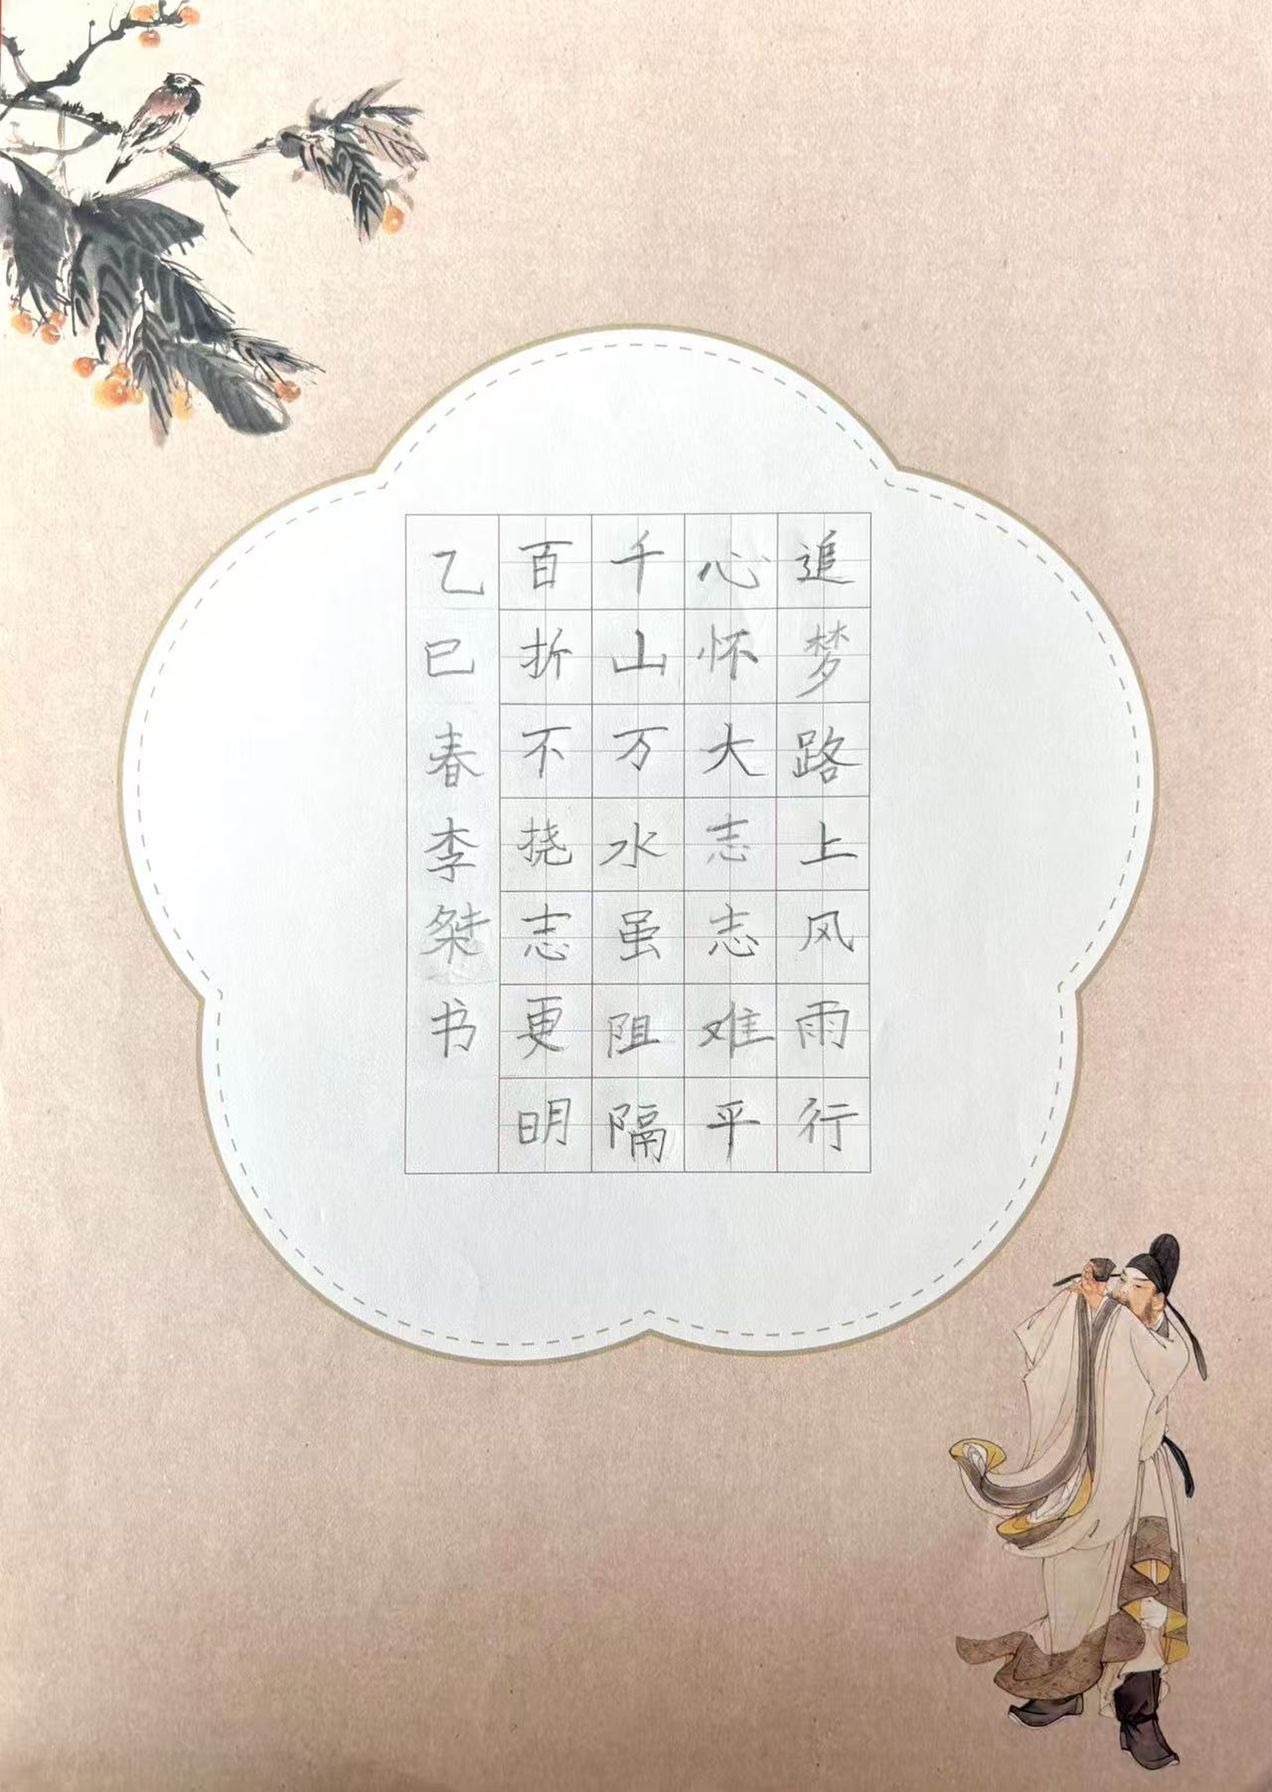 追梦路上风雨行
心怀大志志难平
千山万水虽阻隔
百折不挠志更明
乙巳春李桀书